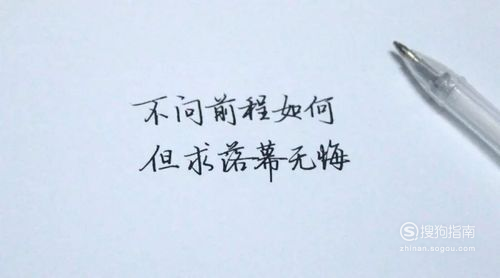 不问前程如何
但求落幕无悔
搜狗指南
zhinan.sogou.com